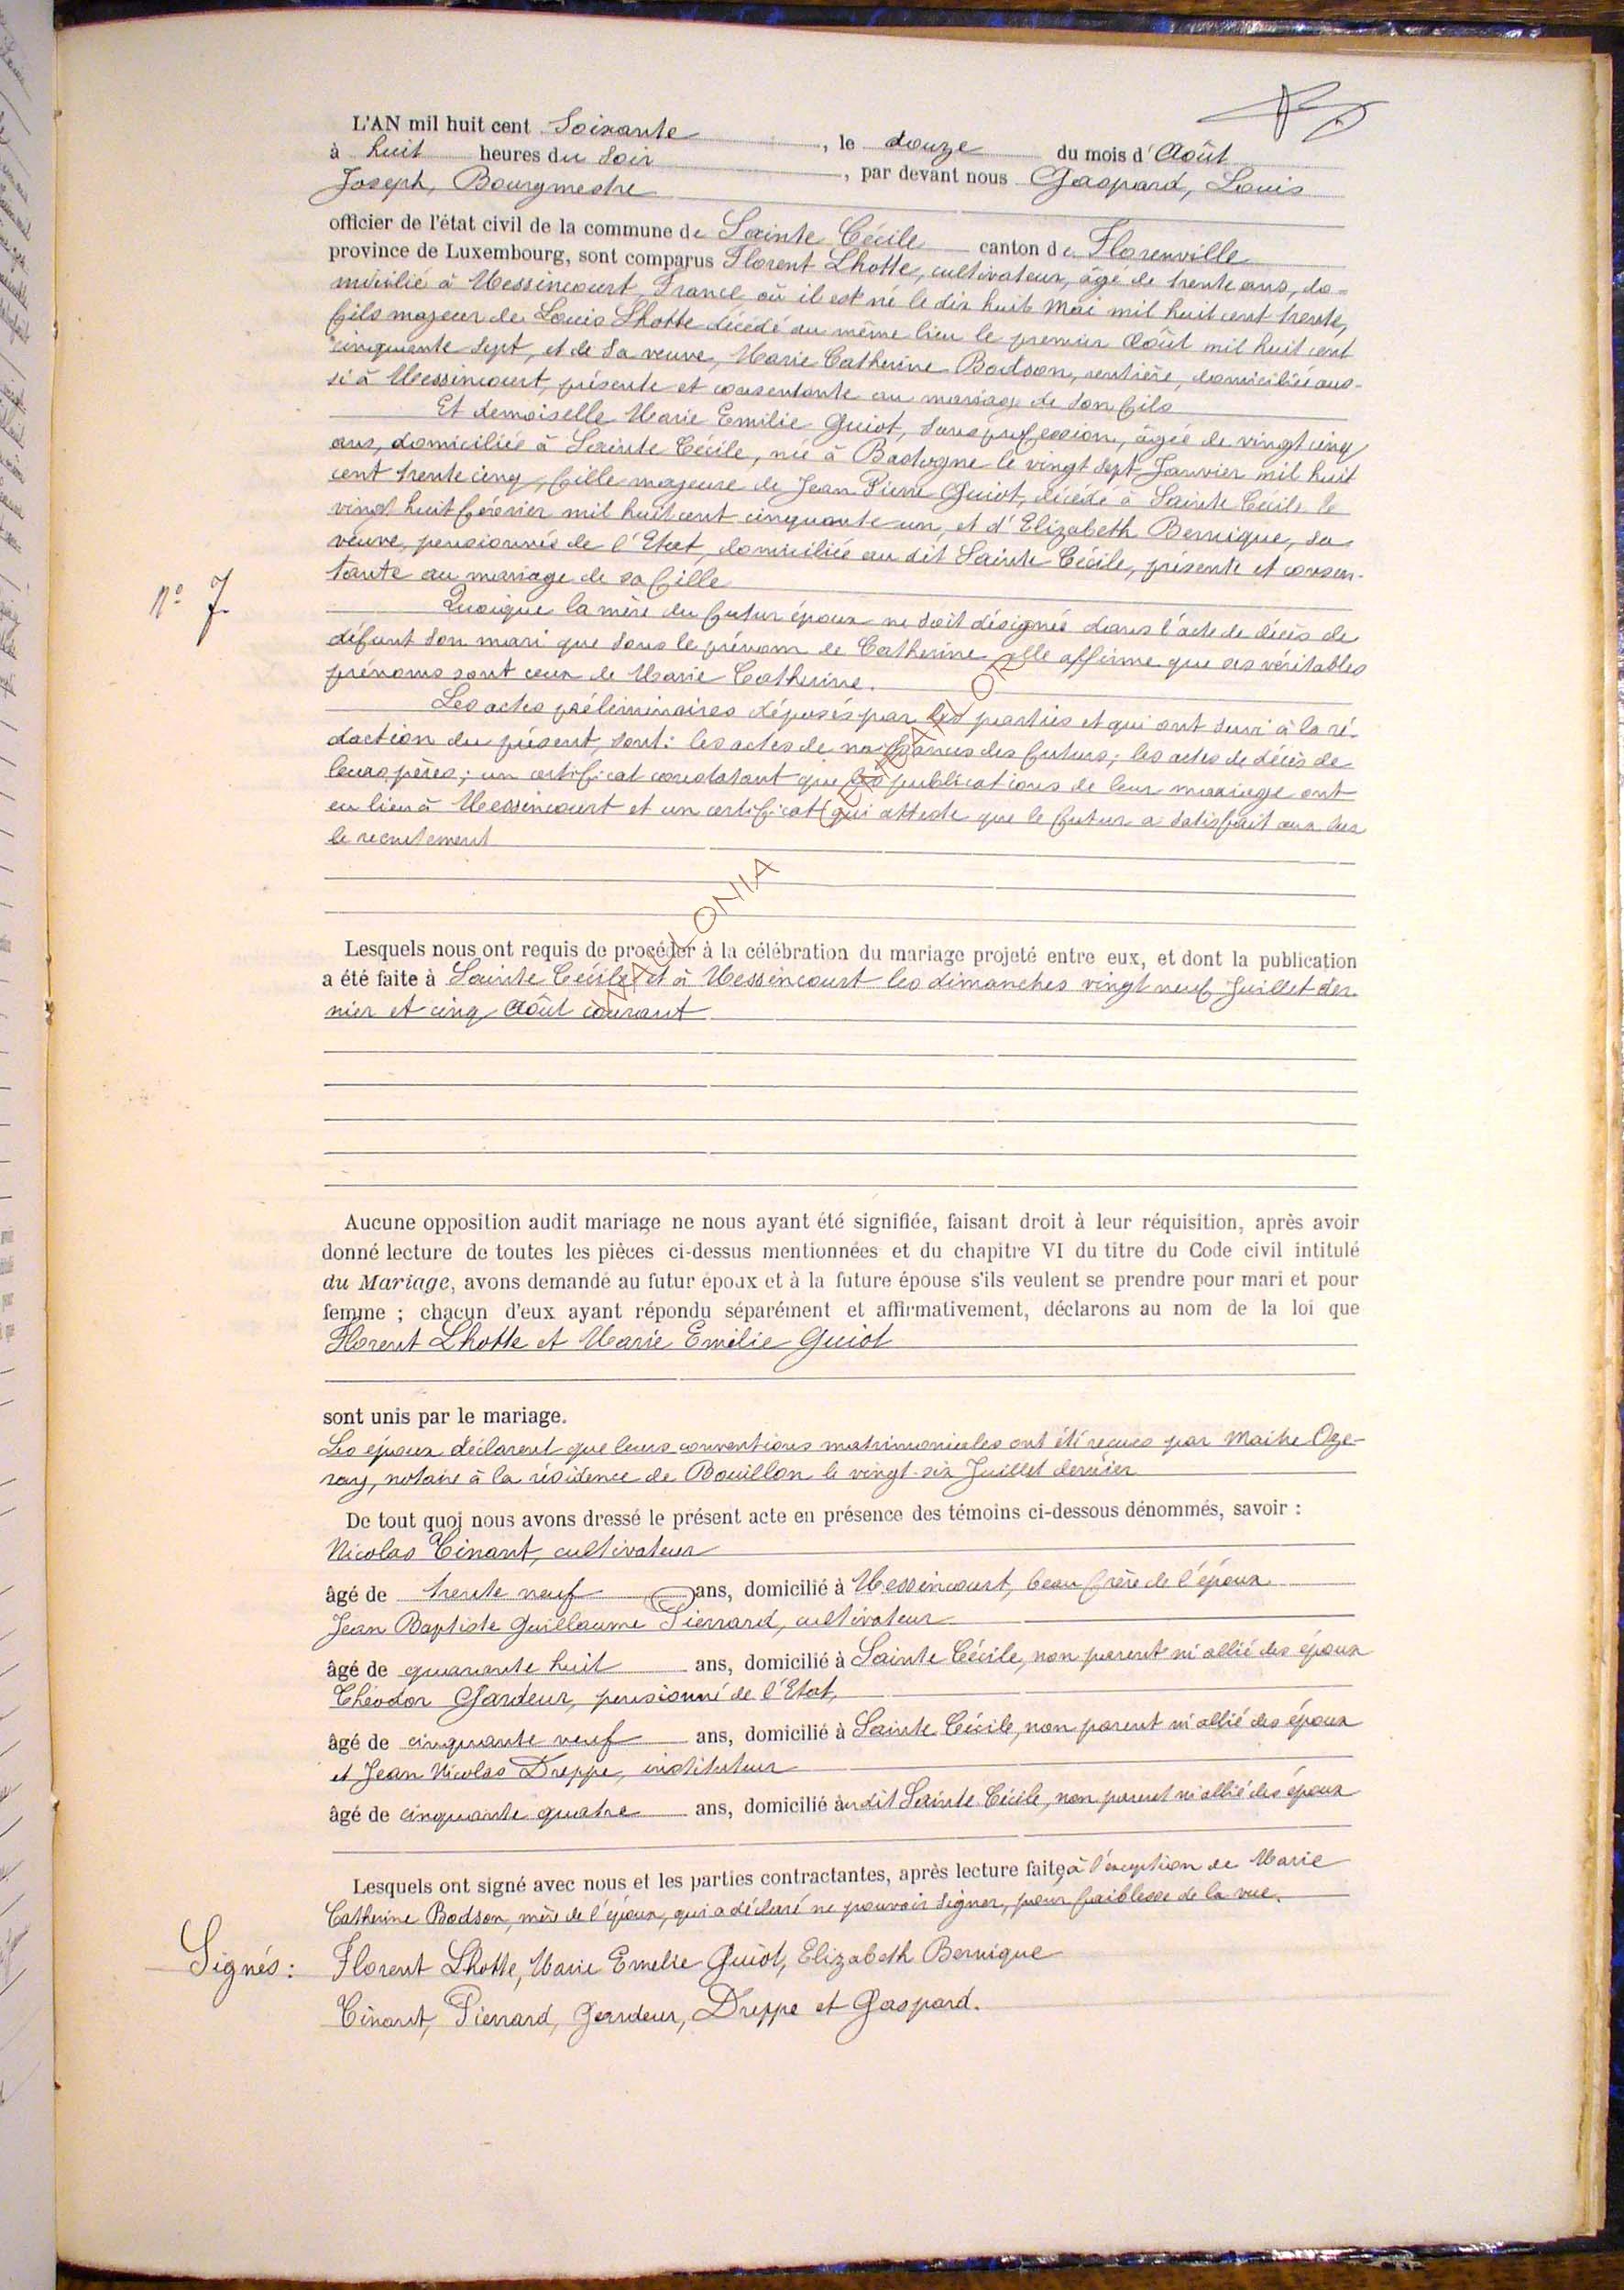 L'AN mil huit cent Soixante, le douze du mois d'Août
à huit heures du Soir, par devant nous Gaspard, Louis
Joseph, Bourgmestre
officier de l'état civil de la commune de Sainte Cécile canton de Florenville
province de Luxembourg, sont comparus Florent Lhotte, cultivateur, âgé de trente ans, do-
micilié à Messincourt, France, où il est né le dix huit Mai mil huit cent trente,
fils majeur de Louis Lhotte décédé au même lieu le premier Août mil huit cent
cinquante sept, et de sa veuve, Marie Catherine Bodson, rentière, domiciliée aus-
si à Messincourt, présente et consentante au mariage de son fils
Et demoiselle Marie Emilie Guiot, sans profession, âgée de vingt cinq
ans, domiciliée à Sainte Cécile, née à Bastogne le vingt sept Janvier mil huit
cent trente cinq, fille majeure de Jean Pierre Guiot, décédé à Sainte Cécile le
vingt huit février mil huit cent cinquante un, et d'Elizabeth Bernique, sa
veuve, pensionnée de l'Etat, domiciliée au dit Sainte Cécile, présente et consen-
tante au mariage de sa fille
N° 7
Quoique la mère du futur époux ne soit désignée dans l'acte de décès de
défunt son mari que sous le prénom de Catherine elle affirme que ses véritables
prénoms sont ceux de Marie Catherine.
Les actes préliminaires déposés par les parties et qui ont servi à la ré-
daction du présent, sont: les actes de naissances des futurs; les actes de décès de
leurs pères; un certificat constatant que les publications de leur mariage ont
eu lieu à Messincourt et un certificat qui atteste que le futur a satisfait aux lois
le recrutement
Lesquels nous ont requis de procéder à la célébration du mariage projeté entre eux, et dont la publication
a été faite à Sainte Cécile et à Messincourt les dimanches vingt neuf Juillet der-
nier et cinq Août courant
Aucune opposition audit mariage ne nous ayant été signifiée, faisant droit à leur réquisition, après avoir
donné lecture de toutes les pièces ci-dessus mentionnées et du chapitre VI du titre du Code civil intitulé
du Mariage, avons demandé au futur époux et à la future épouse s'ils veulent se prendre pour mari et pour
femme ; chacun d'eux ayant répondu séparément et affirmativement, déclarons au nom de la loi que
Florent Lhotte et Marie Emilie Guiot
sont unis par le mariage.
Les époux déclarent que leurs conventions matrimoniales ont été reçues par Maitre Oze-
ray, notaire à la résidence de Bouillon le vingt-six Juillet dernier
De tout quoi nous avons dressé le présent acte en présence des témoins ci-dessous dénommés, savoir :
Nicolas Tinant, cultivateur
âgé de trente neuf ans, domicilié à Messincourt, beau frère de l'époux
Jean Baptiste Guillaume Pierrard, cultivateur
âgé de quarante huit ans, domicilié à Sainte Cécile, non parent ni allié des époux
Théodor Gardeur, pensionné de l'Etat,
âgé de cinquante neuf ans, domicilié à Sainte Cécile, non parent ni allié des époux
et Jean Nicolas Dreppe, instituteur
âgé de cinquante quatre ans, domicilié àudit Sainte Cécile, non parent ni allié des époux
Lesquels ont signé avec nous et les parties contractantes, après lecture faite, à l'exception de Marie
Catherine Bodson, mère de l'époux, qui a déclaré ne pouvoir signer, pour faiblesse de la vue.
Signés: Florent Lhotte, Marie Emelie Guiot, Elizabeth Bernique
Tinant, Pierrard, Gardeur, Dreppe et Gaspard.